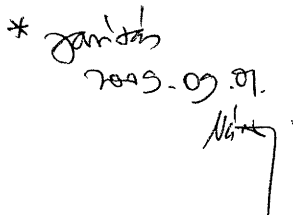 * Javítás
2009.09.01.